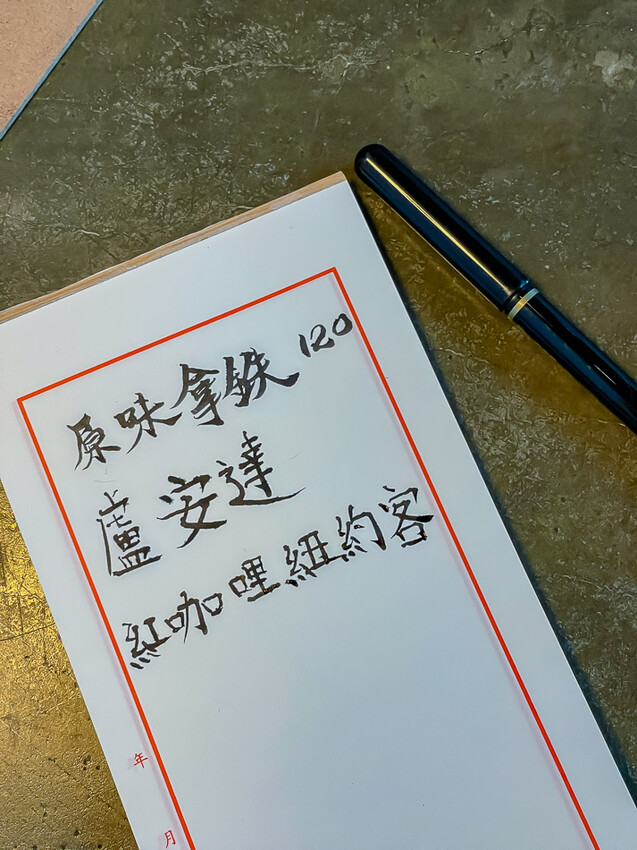 原味拿鉄 120
盧安達
紅咖哩紐約客
年
月